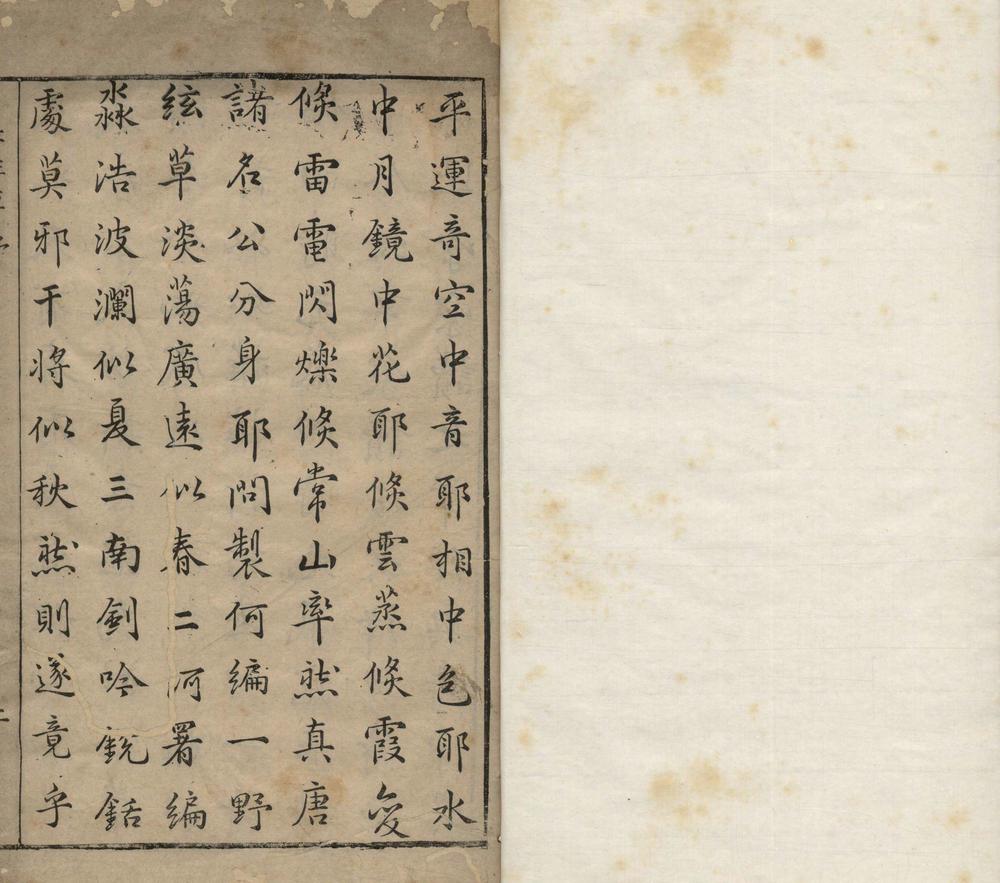 平運奇空中音耶相中色耶水
中月鏡中花耶倏雲蒸倏霞變
倏雷電閃爍倏常山率然真唐
諸名公分身耶問製何編一野
絃草淡蕩廣遠似春二河署編
淼浩波瀾似夏三南劍吟銳銛
處莫邪干將似秋然則遂竟乎